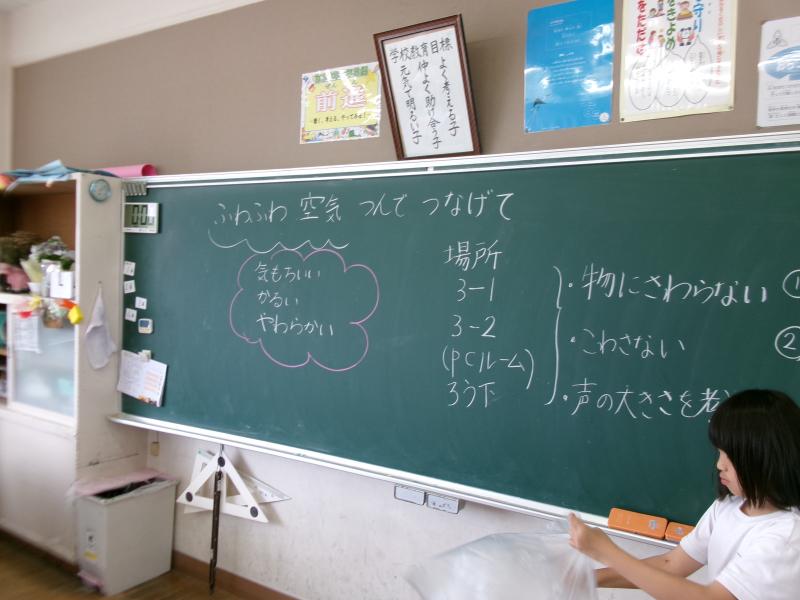 学校教育目標
よく考える子
仲よく助け合う子
元気で明るい子
前進
ふわふわ 空気 つんで つなげて
気もちいい
かるい
やわらかい
場所
3-1
3-2
(PCルーム)
ろう下
・物にさわらない
・こわさない
・声の大きさを考
①
②